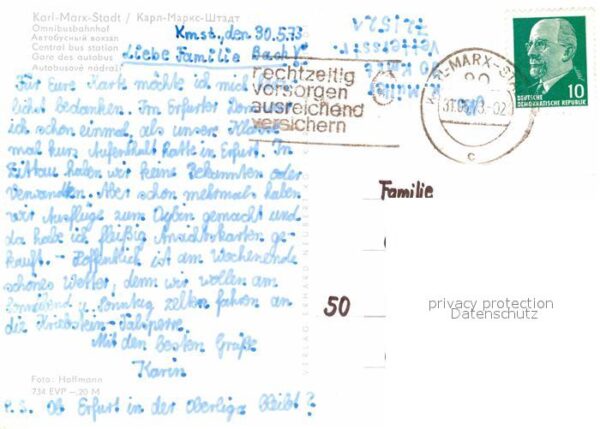 Karl-Marx-Stadt / Карл-Маркс-Штадт
Omnibusbahnhof
Автобусный вокзал
Central bus station
Gare des autobus
Autobusové nádraží
Kmst., den 30.5.73
Liebe Familie Bach!
Für Eure Karte möchte ich mich
bedanken. Im Erfurter Dom
ich schon einmal, als unsere Klasse
mal kurz Aufenthalt hatte in Erfurt. In
Zittau haben wir keine Bekannten oder
Verwandten. Aber schon mehrmals haben
wir Ausflüge zum Oybin gemacht und
da habe ich fleißig Ansichtskarten ge-
kauft. - Hoffentlich ist am Wochenende
schönes Wetter, denn wir wollen am
Sonnabend u. Sonntag zelten fahren an
die Kriebstein-Talsperre.
Mit den besten Grüße
Karin
P.S. Ob Erfurt in der Oberliga bleibt?
Foto: Hoffmann
734 EVP -,20 M
VERLAG ERHARD NEUBERT
rechtzeitig
vorsorgen
ausreichend
versichern
KARL-MARX-ST
90
31.05.73.-02
c
10
DEUTSCHE
DEMOKRATISCHE REPUBLIK
Familie
50
privacy protection
Datenschutz